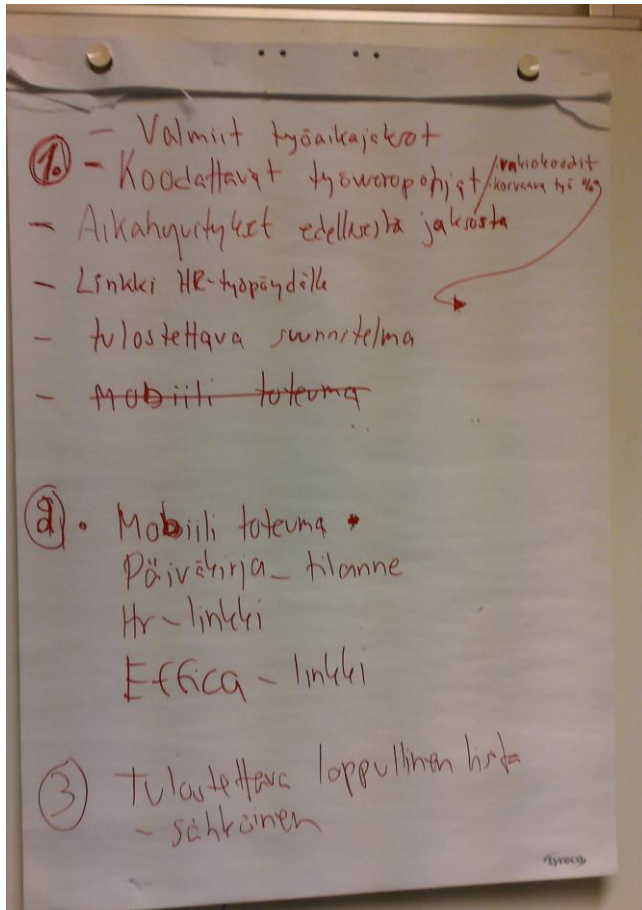 - Valmiit työaikajaksot
1. - Koodattavat työvuoropohjat / vakiokoodit
/ korvaava työ %
- Aikahyvitykset edellisestä jaksosta
- Linkki HR-työpöydälle
- tulostettava suunnitelma
- Mobiili toteuma
2. Mobiili toteuma
Päiväkirja - tilanne
Hr - linkki
Effica - linkki
3 Tulostettava loppullinen lista
- sähköinen
Lyreco